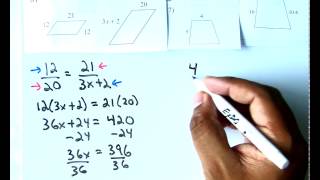 21
12
12
3x + 2
20
4
12/20 = 21/3x+2
12(3x+2) = 21(20)
36x+24 = 420
-24 -24
36x/36 = 396/36
4